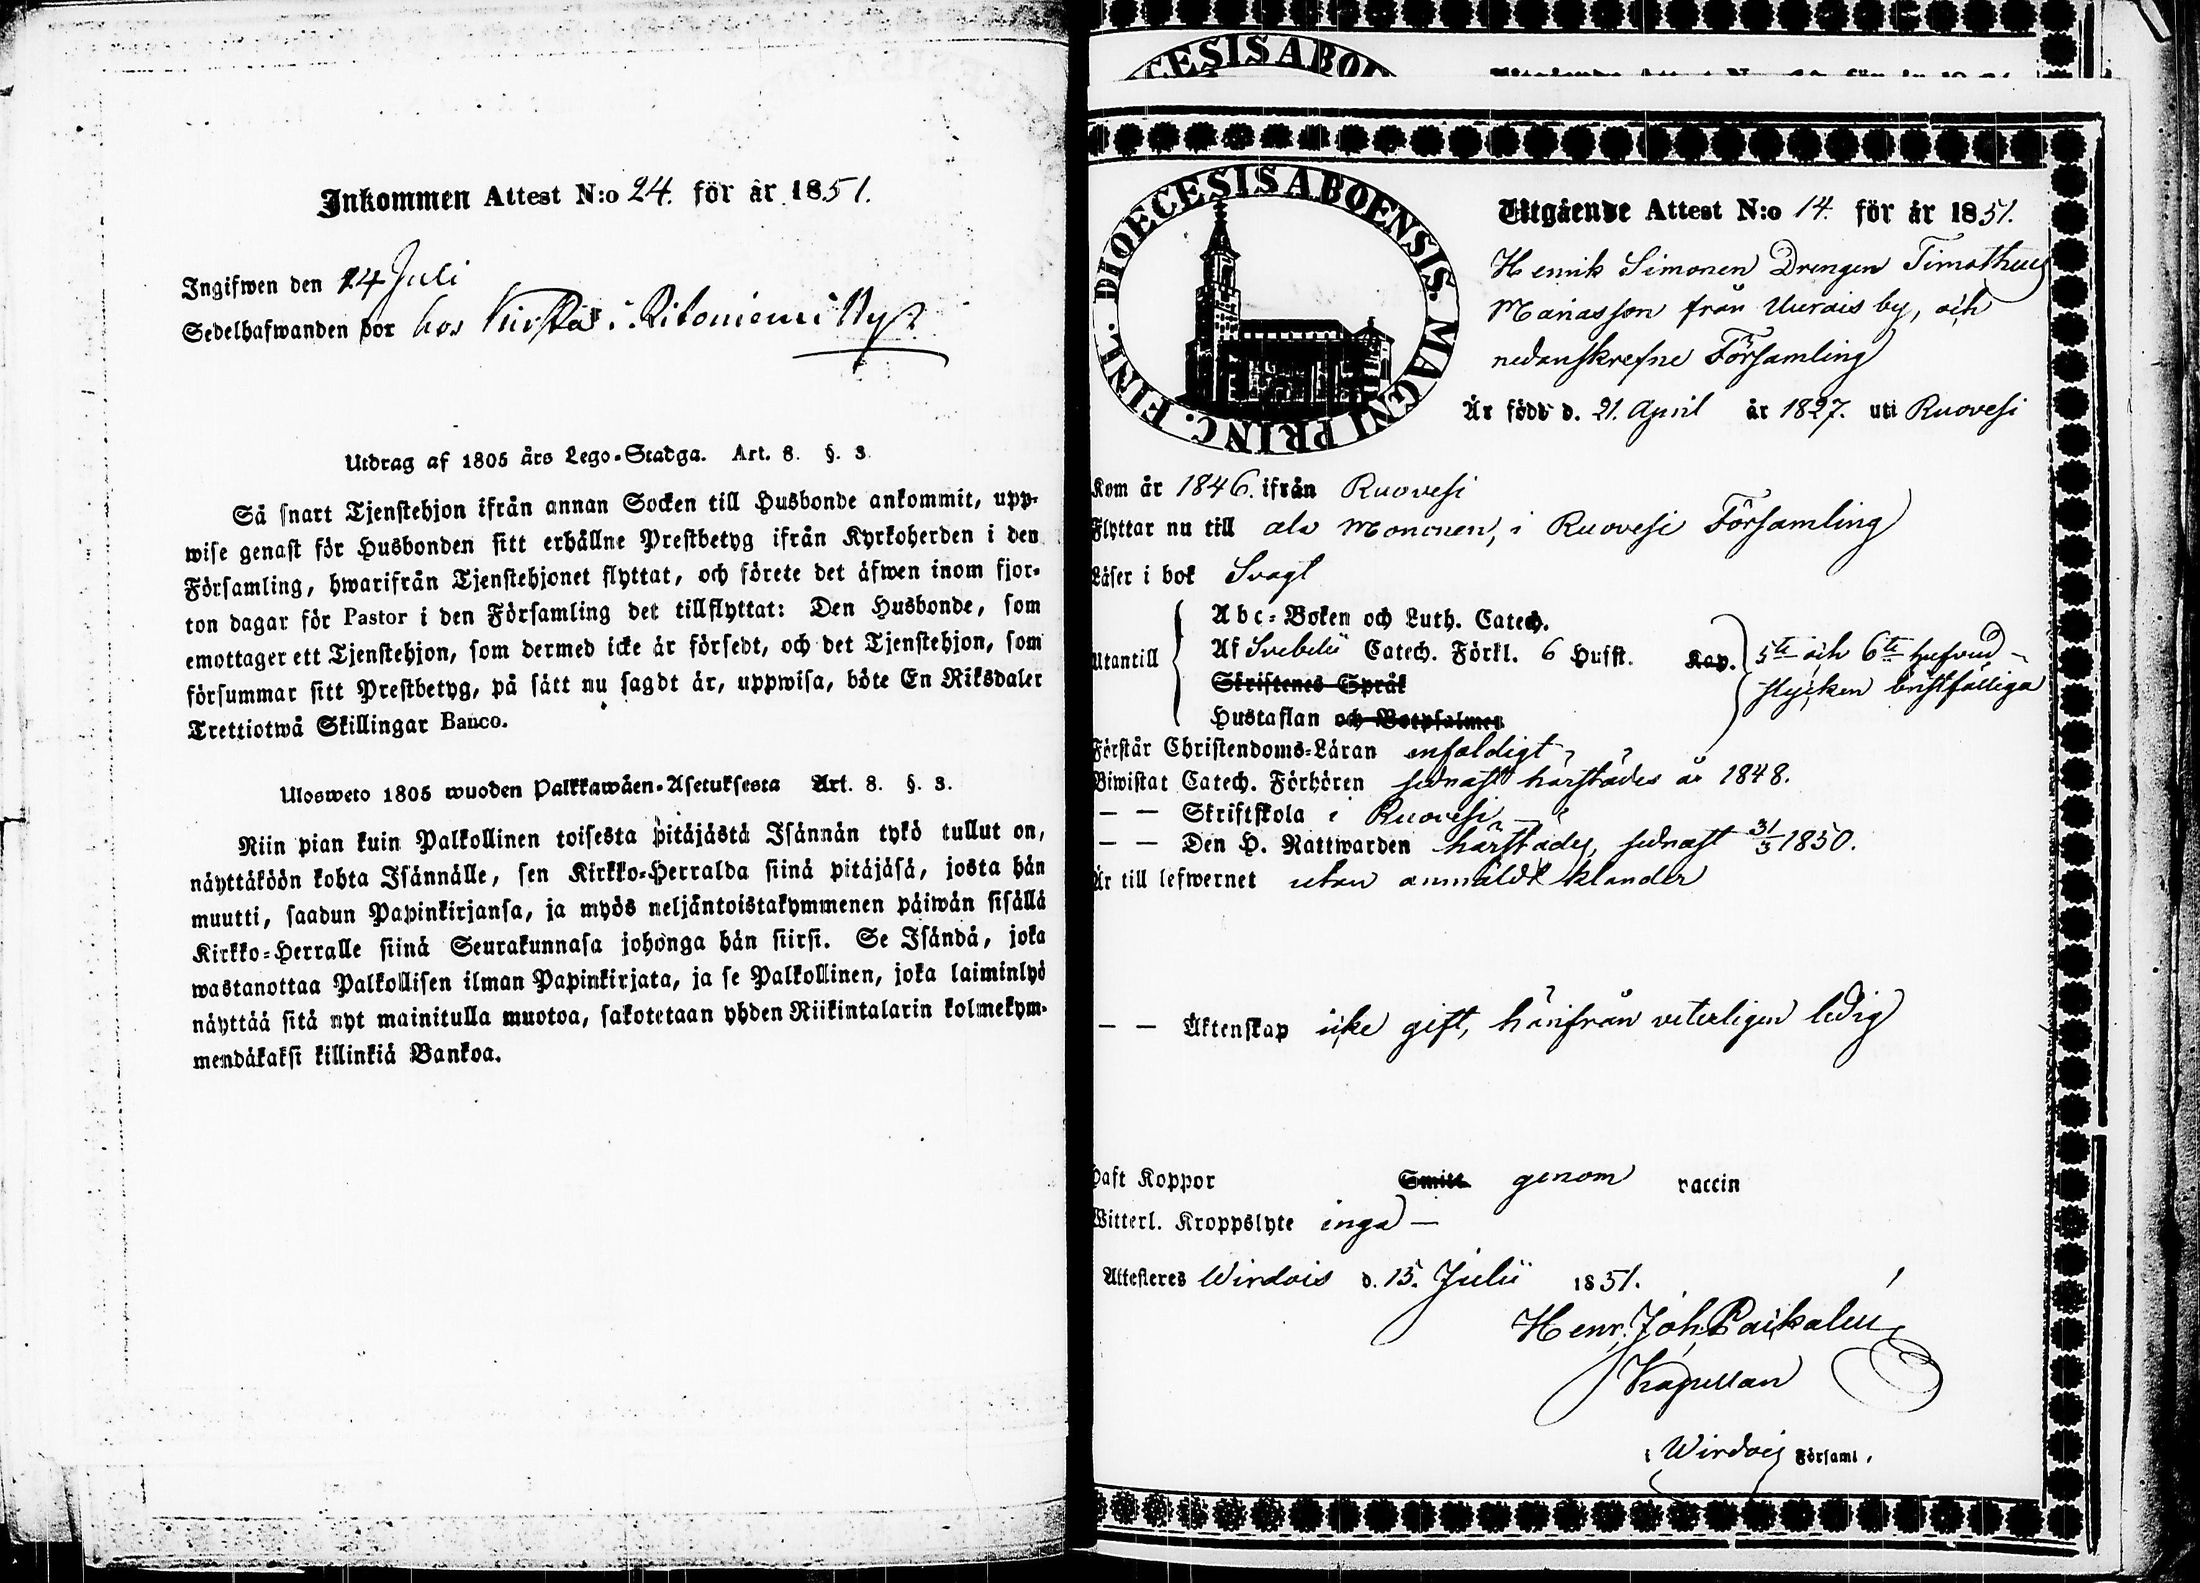 Inkommen Attest N:o 24. för år 1851.
Ingifwen den 24 Juli
Sedelhafwanden bor hos i
Utdrag af 1805 års Lego-Stadga. Art. 8. §. 3.
Så snart Tjenstehjon ifrån annan Socken till Husbonde ankommit, upp-
wise genast för Husbonden sitt erhållne Prestbetyg ifrån Kyrkoherden i den
Församling, hwarifrån Tjenstehjonet flyttat, och förete det äfwen inom fjor-
ton dagar för Pastor i den Församling det tillflyttat: Den Husbonde, som
emottager ett Tjenstehjon, som dermed icke är försedt, och det Tjenstehjon, som
försummar sitt Prestbetyg, på sätt nu sagdt är, uppwisa, böte En Riksdaler
Trettiotwå Skillingar Banco.
Ulosweto 1805 wuoden Palkkawäen-Asetuksesta Art. 8. §. 3.
Niin pian kuin Palkollinen toisesta pitäjästä Isännän tykö tullut on,
näyttäköön kohta Isännälle, sen Kirkko-Herralda siinä pitäjäsä, josta hän
muutti, saadun Papinkirjansa, ja myös neljäntoistakymmenen päiwän sisällä
Kirkko-Herralle siinä Seurakunnasa johonga hän siirsi. Se Isändä, joka
wastanottaa Palkollisen ilman Papinkirjata, ja se Palkollinen, joka laiminlyö
näyttää sitä nyt mainitulla muotoa, sakotetaan yhden Riikintalarin kolmekym-
mendäkaksi killinkiä Bankoa.
CESIS ABOE
DIOECESIS ABOENSIS. MAGNI PRINC. FINL.
Utgående Attest N:o 14. för år 1851.
Henrik Simonen Drengen Timotheus
Manasson från Uurais by, och
nedanskrefne Församling
Är född d. 21. April år 1827. uti Ruovesi
Kom år 1846. ifrån Ruovesi
Flyttar nu till Ala Moncnen, i Ruovesi Församling
Läser i bok Svagt
Abc-Boken och Luth. Catech.
Utantill Af Svebelii Catech. Förkl. 6 Hufst. Kap. 5te och 6te hufvud-
Skriftenes Språk stycken bristfälliga
Hustaflan och Botpsalmer
Förstår Christendoms-Läran enfaldigt
Biwistat Catech. Förhören sednast härstädes år 1848.
— — Skriftskola i Ruovesi
— — Den H. Nattwarden härstädes, sednast 31/3 1850.
Är till lefwernet utan anmäldt klander
— — Äktenskap icke gift, härifrån veterligen ledig
Haft Koppor Smitt. genom vaccin
Witterl. Kroppslyte inga —
Attesteres Wirdois d. 15. Julii 1851.
Henr. Joh. Paikalen
Kapellan
i Wirdois Församl.